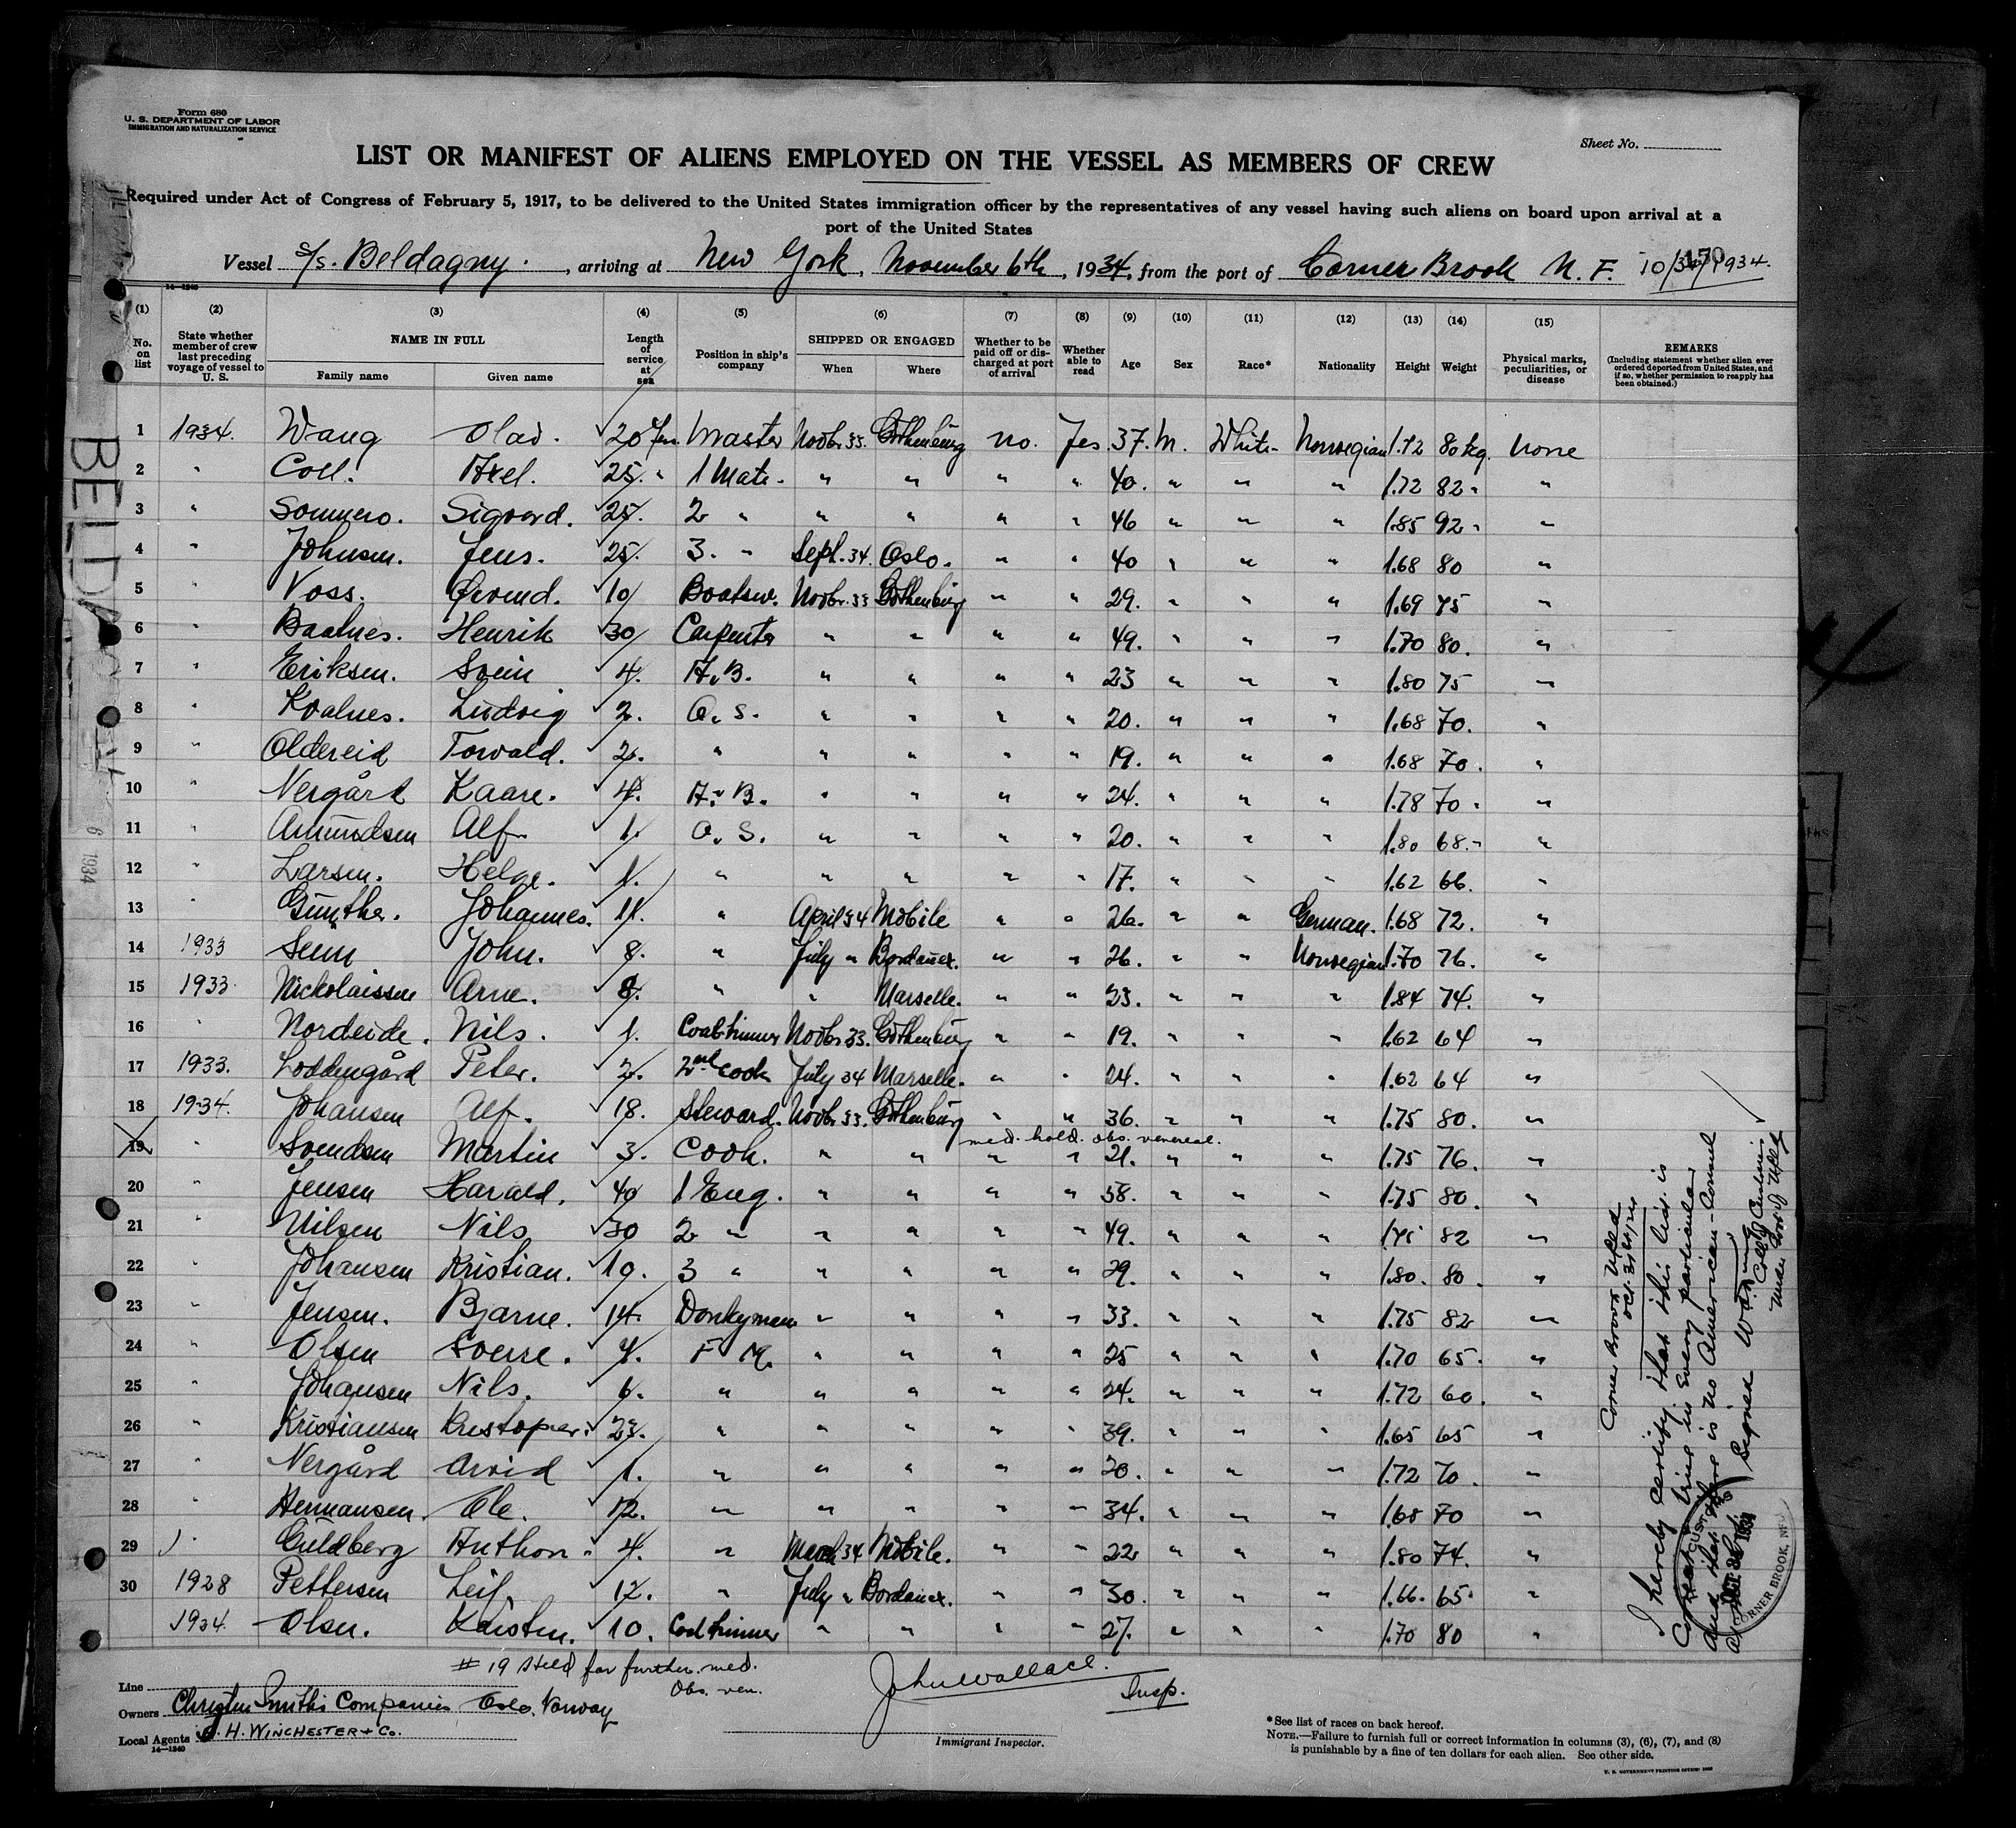 Form 680
U. S. DEPARTMENT OF LABOR
IMMIGRATION AND NATURALIZATION SERVICE
Sheet No.
LIST OR MANIFEST OF ALIENS EMPLOYED ON THE VESSEL AS MEMBERS OF CREW
Required under Act of Congress of February 5, 1917, to be delivered to the United States immigration officer by the representatives of any vessel having such aliens on board upon arrival at a
port of the United States
Vessel S/S. Beldagny. , arriving at New York, November 6th, 1934, from the port of Corner Brook N. F. 10/31/1934.
14—1240
(1) (2) (3) (4) (5) (6) (7) (8) (9) (10) (11) (12) (13) (14) (15)
No. on list State whether member of crew last preceding voyage of vessel to U. S. NAME IN FULL Family name Given name Length of service at sea Position in ship's company SHIPPED OR ENGAGED When Where Whether to be paid off or discharged at port of arrival Whether able to read Age Sex Race* Nationality Height Weight Physical marks, peculiarities, or disease REMARKS (Including statement whether alien ever ordered deported from United States, and if so, whether permission to reapply has been obtained.)
1 1934. Wang Olav. 20 Yrs. Master Novbr 33. Gothenburg no. Yes. 37. M. White Norwegian 1.72 80 kg. None
2 " Coll. Axel. 25. " 1 Mate " " " " 40. " " " 1.72 82 " "
3 " Sommero. Sigvard. 25. 2 " " " " " 46 " " " 1.85 92 " "
4 " Johnsen. Jens. 25. 3. " Sept. 34. Oslo. " " 40 " " " 1.68 80 "
5 " Voss. Øivind. 10 Boatsw. Novbr. 33 Gothenburg " " 29. " " " 1.69 75 "
6 " Baalnes. Henrik 30 Carpenter " " " " 49. " " " 1.70 80. "
7 " Eriksen. Svein 4. A.B. " " " " 23 " " " 1.80 75 "
8 " Kvalnes. Ludvig 2. O.S. " " " " 20. " " " 1.68 70. "
9 " Oldereid Torvald. 2. " " " " " 19. " " " 1.68 70. "
10 " Nergård Kaare. 4. A.B. " " " " 24. " " " 1.78 70. "
11 " Amundsen Alf. 1. O.S. " " " " 20. " " " 1.80 68. "
12 " Larsen. Helge. 1. " " " " " 17. " " " 1.62 66. "
13 " Günther. Johannes. 11. " April 34 Mobile " " 26. " " German. 1.68 72. "
14 1933 Senn John. 8. " July " Bordauex. " " 26. " " Norwegian 1.70 76. "
15 1933 Nickolaissen Arne. 8. " " Marselle. " " 23. " " " 1.84 74. "
16 " Nordeide. Nils. 1. Coaltrimmer Novbr 33. Gothenburg " " 19. " " " 1.62 64 "
17 1933. Loddengård Peter. 2. 2nd cook July 34 Marselle. " " 24. " " " 1.62 64 "
18 1934. Johansen Alf. 18. Steward. Novbr. 33. Gothenburg " " 36. " " " 1.75 80. "
med. hold. obs. venereal.
19 " Svendsen Martin 3. Cook. " " " " 21. " " " 1.75 76. "
20 " Jensen Harald. 40 1 Eng. " " " " 58. " " " 1.75 80. "
21 " Nilsen Nils 30 2 " " " " " 49. " " " 1.75 82 "
22 " Johansen Kristian. 10. 3 " " " " " 29. " " " 1.80. 80. "
23 " Jensen. Bjarne. 14. Donkyman " " " " 33. " " " 1.75 82 "
24 " Olsen Sverre. 4. F M. " " " " 25 " " " 1.70 65. "
25 " Johansen Nils. 6. " " " " " 24. " " " 1.72 60. "
26 " Kristiansen Kristopher. 23. " " " " " 39. " " " 1.65 65 "
27 " Nergård Arvid 1. " " " " " 20. " " " 1.72 70. "
28 " Hermansen. Ole. 12. " " " " " 34. " " " 1.68 70 "
29 " Guldberg Anthon. 4. " March 34 Mobile. " " 22 " " " 1.80 74. "
30 1928 Pettersen Leif. 12. " July " Bordauex. " " 30. " " " 1.66. 65. "
1934. Olsen. Karsten. 10. Coal trimmer " " " " 27. " " " 1.70 80 "
Corner Brook Nfld
Oct. 31st 1934
I hereby certify that this list is
Correct & true in every particular
and that there is no American Consul
Signed
CORNER BROOK, NFLD
# 19 Held for further med.
Obs. ven.
John Wallace.
Insp.
Line
Owners Christen Smiths Companies Oslo, Norway
Local Agents H. WINCHESTER & Co.
14—1240
Immigrant Inspector.
*See list of races on back hereof.
NOTE.—Failure to furnish full or correct information in columns (3), (6), (7), and (8)
is punishable by a fine of ten dollars for each alien. See other side.
U. S. GOVERNMENT PRINTING OFFICE
BELDA
6 1934